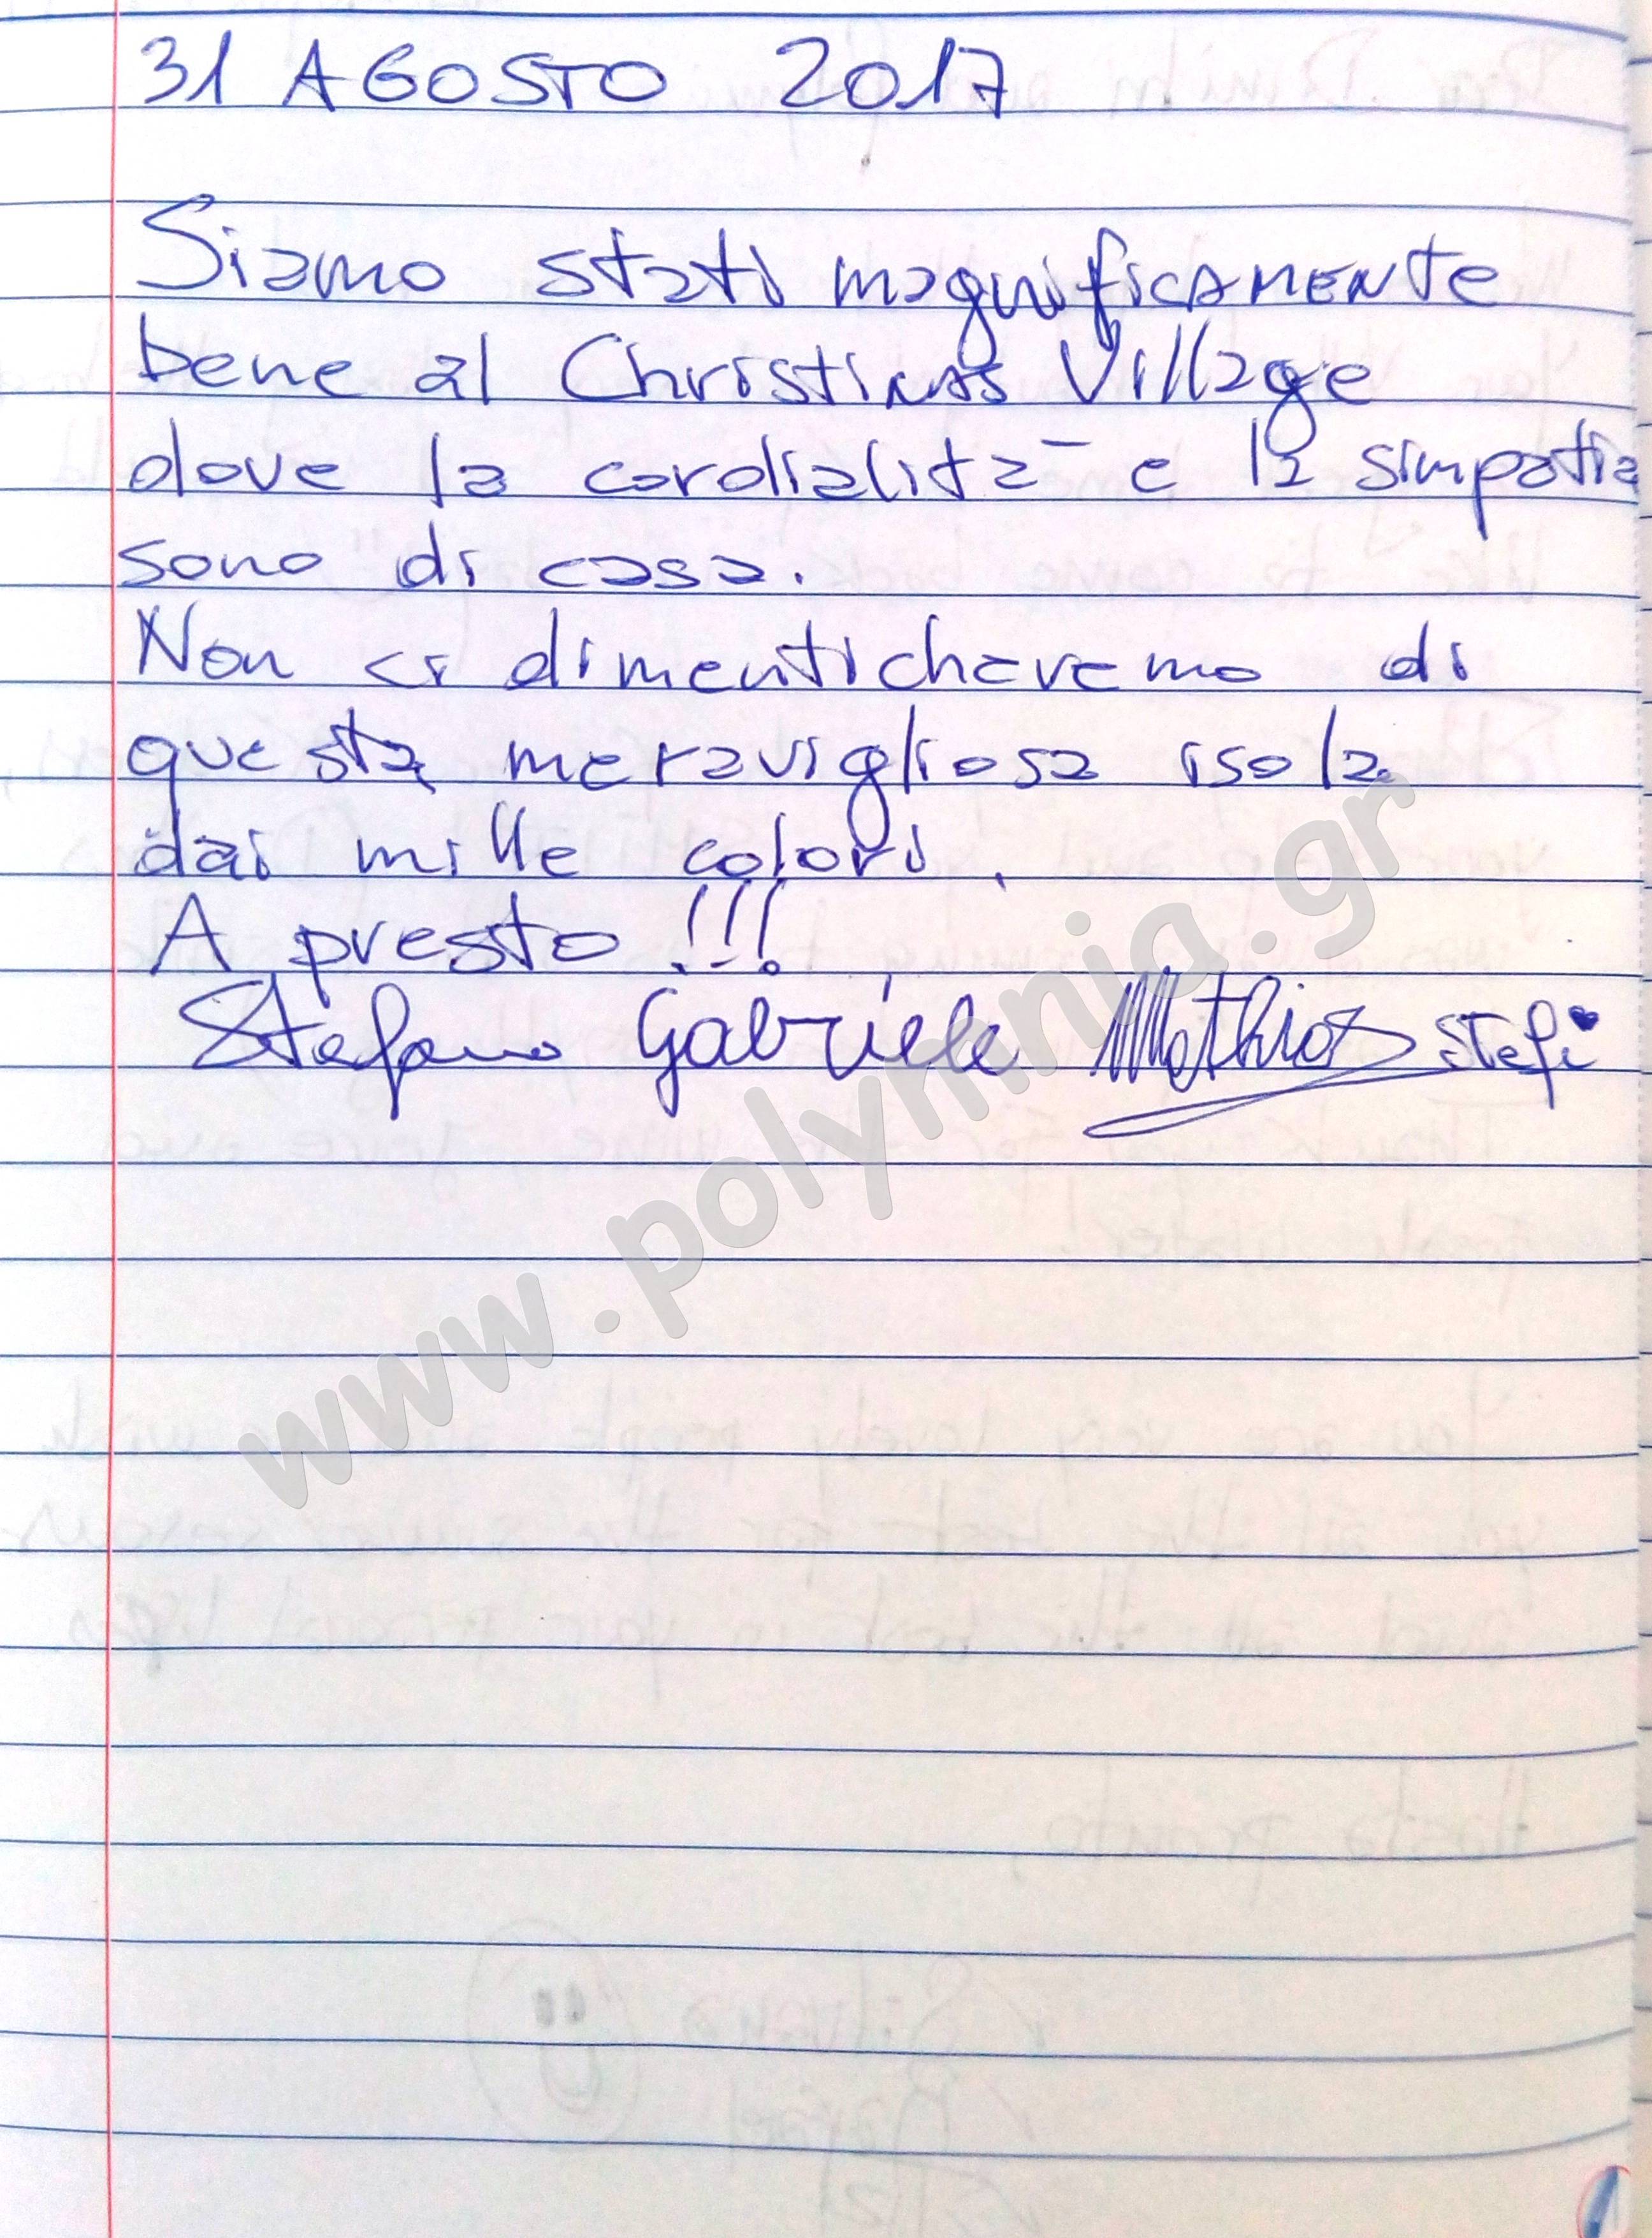 31 AGOSTO 2017
Siamo stati magnificamente
bene al Christinas Village
dove la cordialità e la simpatia
sono di casa.
Non ci dimenticheremo di
questa meravigliosa isola
dai mille colori.
A presto !!!
Stefano Gabriele Mathias Stefi
www.polymnia.gr